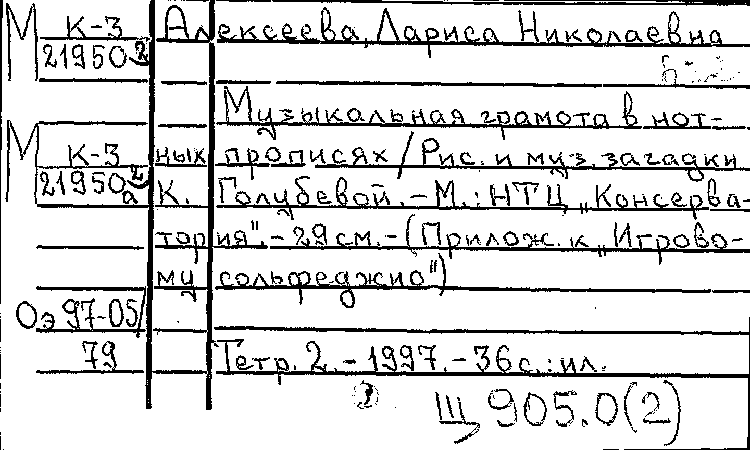 М К-3 Алексеева, Лариса Николаевна
21950 2
Музыкальная грамота в нот-
М К-3 ных прописях / Рис. и муз. загадки
21950 2 а К. Голубевой. - М.: НТЦ „Консерва-
тория". - 29 см. - (Прилож. к „Игрово-
му сольфеджио")
Оэ 97-05/
79 Тетр. 2. - 1997. - 36 с.: ил.
Щ 905.0(2)